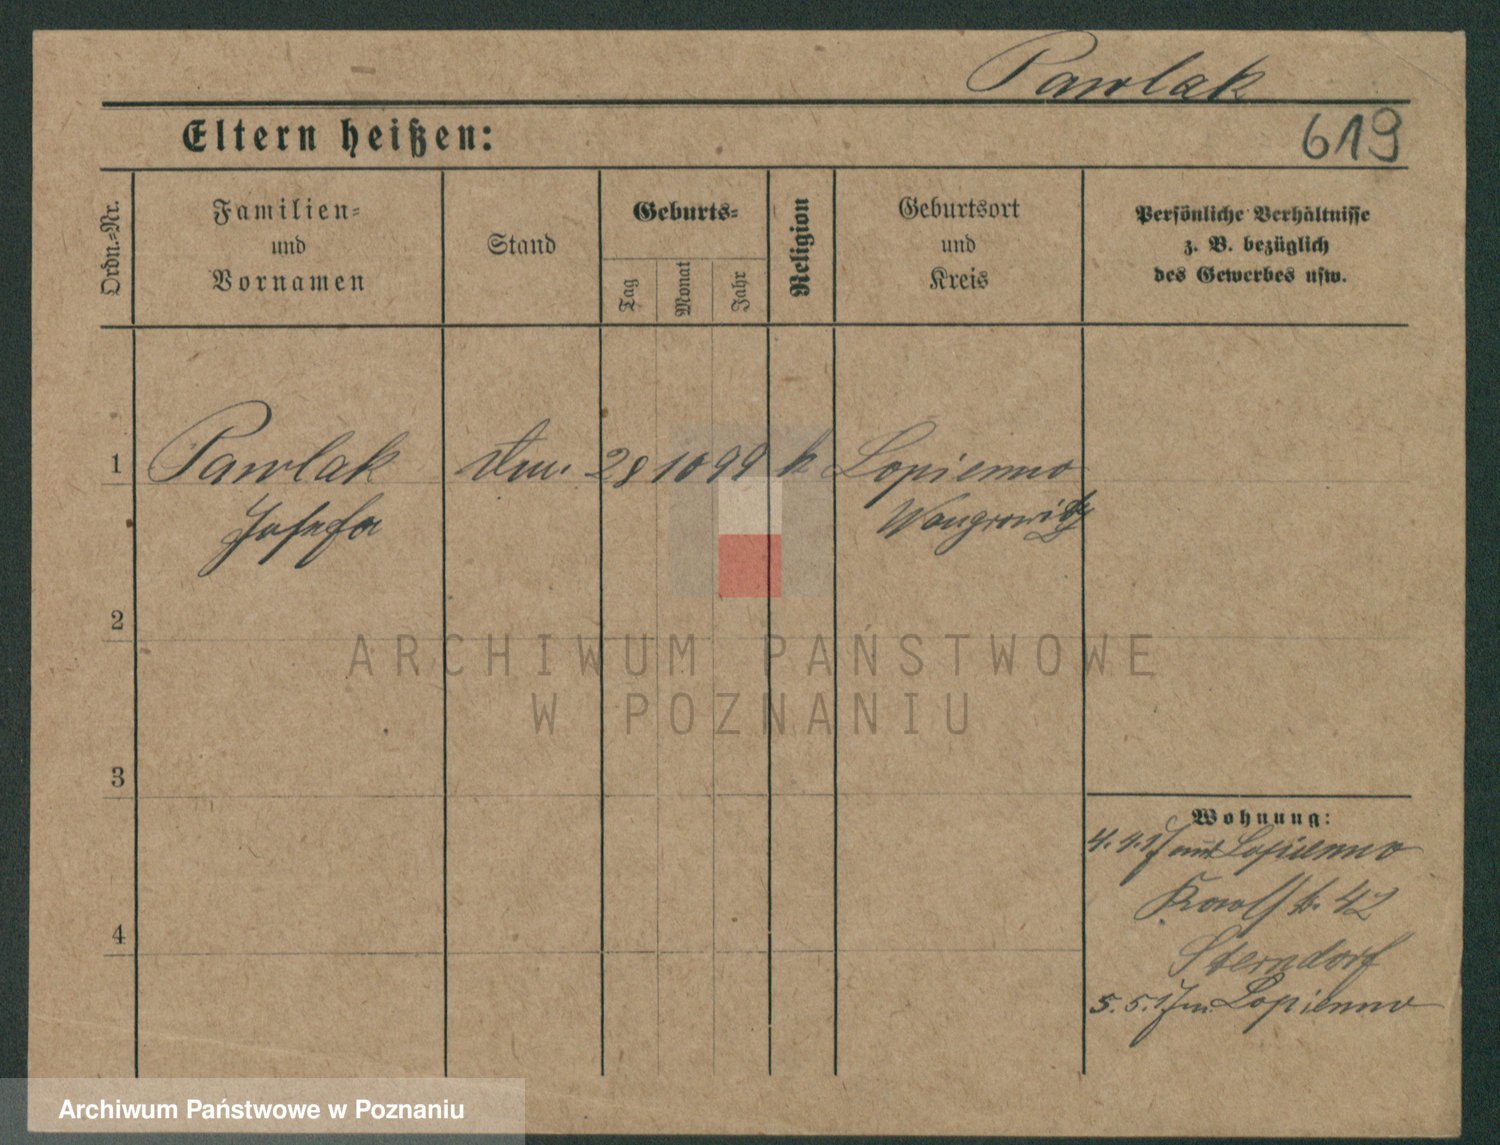 Pawlak
Eltern heißen:
619
Ordn.=Nr.
Familien=
und
Vornamen
Stand
Geburts=
Tag
Monat
Jahr
Religion
Geburtsort
und
Kreis
Persönliche Verhältnisse
z. B. bezüglich
des Gewerbes usw.
1
Pawlak
28 10 99 k
Lopienno
Josefa
Wongrowitz
2
ARCHIWUM PAŃSTWOWE
W POZNANIU
3
Wohnung:
4.4.17 aus Lopienno
42
4
Sterndorf
5.5.17 n. Lopienno
Archiwum Państwowe w Poznaniu